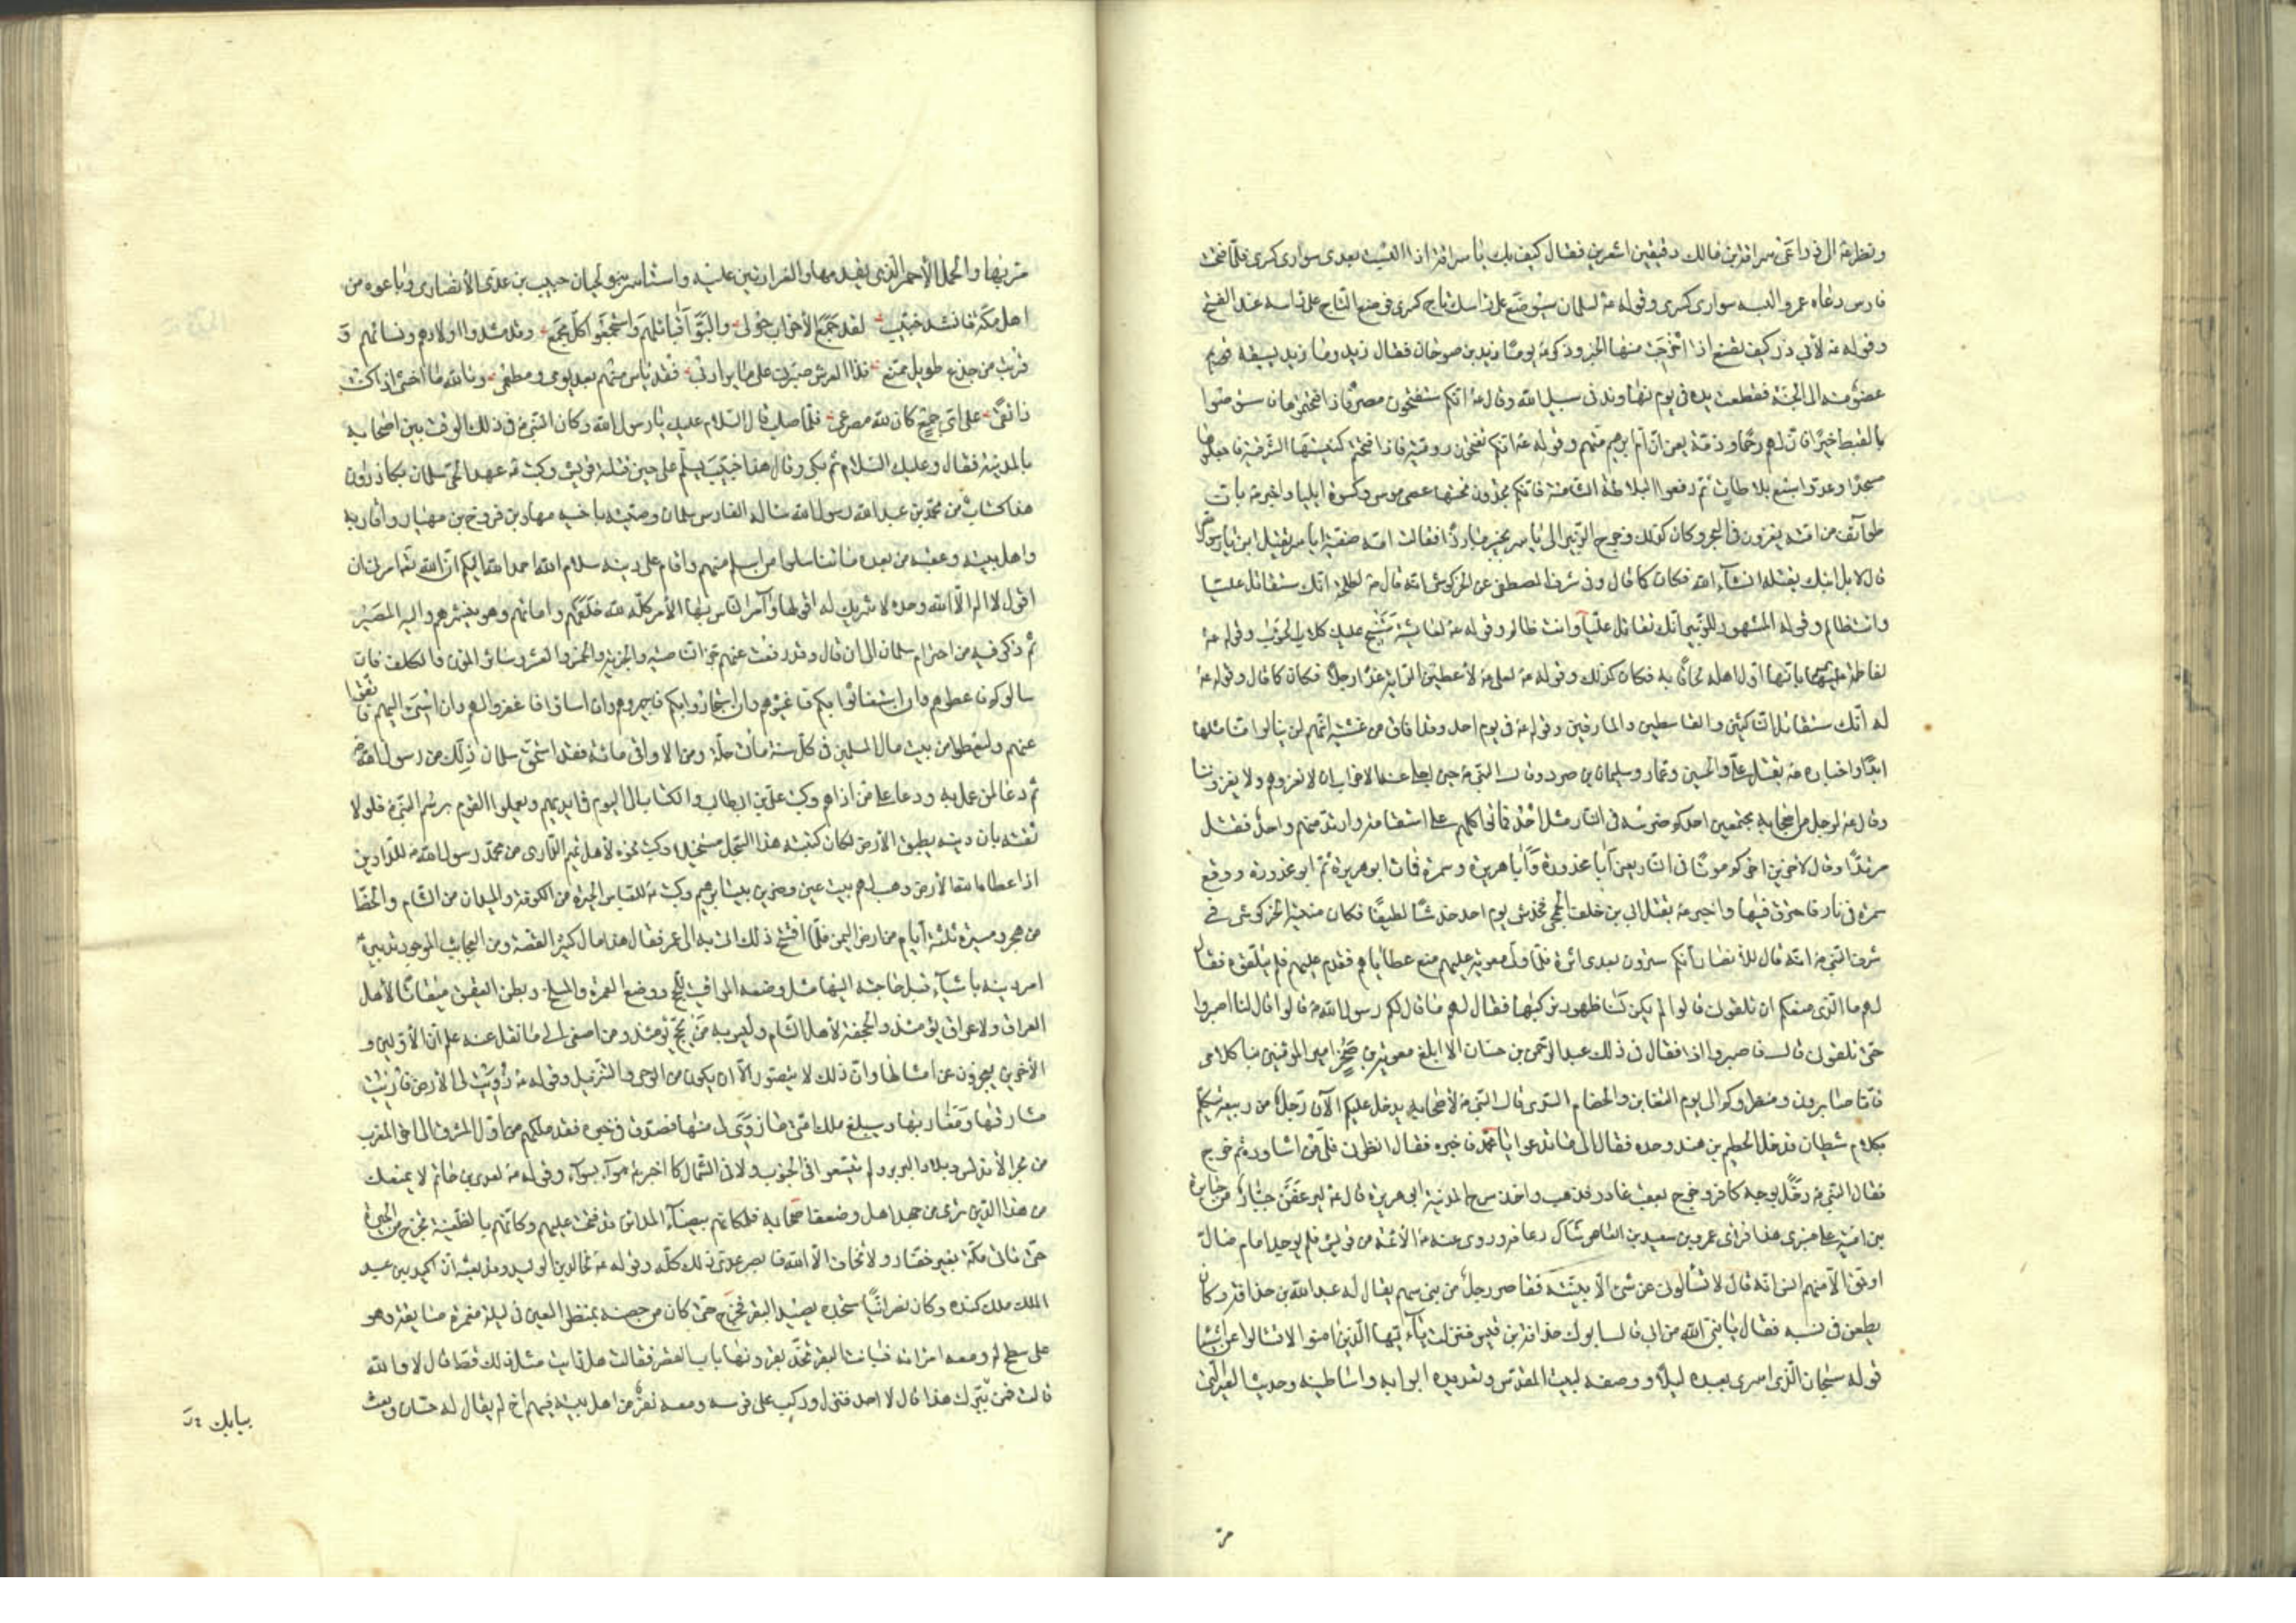 ونظر ص الى ذراعى سراقة بن مالك دقيقين اشعرين فقال كيف بك يا سراقة اذا البست بعدى سوارى كسرى فلما فتحت
فارس دعاه عمر والبسه سوارى كسرى وقوله ص لسلمان سيوضع على راسك تاج كسرى فوضع التاج على راسه عند الفتح
وقوله ص لأبي ذر كيف تصنع اذا اخرجت منها الخبر وذكر ص يوما زيد بن صوحان فقال زيد وما زيد يسبقه
عضو منه الى الجنة فقطعت يده فى يوم نهاوند فى سبيل الله وقال ص انكم ستفتحون مصر فاذا فتحتموها فاستوصوا
بالقبط خيرا فان لهم رحما وذمة يعنى ان ام ابرهيم منهم وقوله ص انكم تفتحون رومية فاذا فتحتم كنيستها الشرقية فاجعلوها
مسجدا وعدوا سبع بلاطات ثم ارفعوا البلاطة الثامنة فانكم تجدون تحتها عصى موسى وكسوة ايليا واخبر ص بان
طوائف من امته يغزون فى البحر وكان كذلك وخرج الزبير الى ياسر بخيبر مبارزا فقالت امه صفية ايا سر يقتل ابنى يا رسول الله
قال لا بل ابنك يقتله انشاء الله فكان كما قال وفى شرف المصطفى عن الخركوشى انه قال ص لطلحة انك ستقاتل عليا
وانت ظالم وقوله المشهور للزبير انك تقاتل عليا وانت ظالم وقوله ص لعايشة ستنبح عليك كلاب الحوأب وقوله ص
لفاطمة عليها السلم بانها اول اهله لحاقا به فكان كذلك وقوله ص لعلى ص لأعطين الراية غدا رجلا فكان كما قال وقوله ص
له انك ستقاتل الناكثين والقاسطين والمارقين وقوله ص فى يوم احد وقد افاق من غشيته انهم لن ينالوا منا مثلها
ابدا واخباره ص بقتل على والحسين وعمار وسليمان بن صرد وقال النبي ص حين اجلى عنه الاحزاب الان نغزوهم ولا يغزونا
وقال ص لرجل من اصحابه مجتمعين احدكم ضرسه فى النار مثل احد فماتوا كلهم على استقامة وارتد منهم واحد فقتل
مرتدا وقال لاخرين اخركم موتا فى النار يعنى ابا محذورة وابا هريرة وسمرة فمات ابو هريرة ثم ابو محذورة ووقع
سمرة فى نار فاحترق فيها واخبر ص بقتل ابى بن خلف الجمحى فخدش يوم احد خدشا لطيفا فكان منيته الخركوشى فى
شرف النبي ص انه قال للأنصار انكم سترون بعدى اثرة فلما ولى معوية عليهم منع عطاياهم فقدم عليهم فلم يتلقوه فقال
لهم ما الذى منعكم ان تلقونى قالوا لم يكن لنا ظهور نركبها فقال لهم ما قال لكم رسول الله ص قالوا قال لنا اصبروا
حتى تلقونى قال فاصبروا اذا فقال فى ذلك عبد الرحمن بن حسان الا ابلغ معوية بن صخر امير المؤمنين نبا كلامى
فانا صابرون ومنظروكم الى يوم التغابن والخصام السدى قال النبي ص لأصحابه يدخل عليكم الآن رجل من ربيعة يتكلم
بكلام شيطان فدخل الحطيم بن هند وحده فقال الى ما تدعو يا محمد فاخبره فقال انظرنى فلى من اشاوره ثم خرج
فقال النبي ص دخل بوجه كافر وخرج بعقب غادر فذهب واخذ سرح المدينة ابى هريرة قال ص ليرعفن جبار من جبابرة
بنى امية على منبرى هذا فراى عمرو بن سعيد بن العاص سال رعافه وروى عنه ص الأئمة من قريش فلم يوجد امام ضال
او حق الا منهم انس انه قال لا تسألونى عن شئ الا بينته فقام رجل من بنى سهم يقال له عبد الله بن حذافة وكان
يطعن فى نسبه فقال يا نبى الله من ابى قال ابوك حذافة بن قيس فنزلت يا ايها الذين امنوا لا تسالوا عن اشياء
قوله سبحان الذى اسرى بعبده ليلا ووصفه لبيت المقدس وتعديده ابوابه واساطينه وحديث العير التى
مر
مر بها والجمل الأحمر الذى يقدمها والغرارتين عليه واستاسر بنو لحيان خبيب بن عدى الأنصارى وباعوه من
اهل مكة فانشد خبيب لقد جمع الأحزاب حولى والبوا قبائلهم واستجمعوا كل مجمع وقد حشدوا اولادهم ونسائهم و
قربت من جذع طويل ممنع فذا العرش صبرنى على ما يراد بى فقد ياس منهم بعد يومى ومطمعى وتالله ما اخشى اذا كنت
ذا تقى على اى جمع كان لله مصرعى فلما صلب قال السلام عليك يا رسول الله وكان النبي ص فى ذلك الوقت بين اصحابه
بالمدينة فقال وعليك السلام ثم بكى وقال هذا خبيب يسلم على حين قتلته قريش وكتب ص عهدا لحى سلمان بكازرون
هذا كتاب من محمد بن عبد الله رسول الله ساله الفارسى سلمان وصية باخيه مهاد بن فروخ بن مهيار واقاربه
واهل بيته وعقبه من بعده ما تناسلوا من اسلم منهم واقام على دينه سلام الله احمد الله اليكم ان الله تعالى امرنى ان
اقول لا اله الا الله وحده لا شريك له اقولها وآمر الناس بها الأمر كله لله خلقهم واماتهم وهو ينشرهم واليه المصير
ثم ذكر فيه من احترام سلمان الى ان قال وقد رفعت عنهم جز الناصية والجزية والخمس والعشر وسائر المؤن والكلف فان
سالوكم فاعطوهم وان استغاثوا بكم فاغيثوهم وان استجاروا بكم فاجيروهم وان اساؤا فاغفروا لهم وان اسئ اليهم فامنعوا
عنهم وليعطوا من بيت مال المسلمين فى كل سنة مأتى حلة ومن الاواقى مائة فقد استحق سلمان ذلك من رسول الله ص
ثم دعا لمن عمل به ودعا على من اذاهم وكتب على بن ابيطالب والكتاب الى اليوم فى ايديهم ويعملوا القوم برسم النبي ص فلولا
ثقته بان دينه يطبق الأرض لكان كتبه هذا السجل مستحيلا وكتب نحوه لأهل تميم الدارى من محمد رسول الله ص للداريين
اذا اعطاه الله الأرض وهب لهم بيت عين وحبرين وبيت ابرهيم وكتب ص للعباس الحيرة من الكوفة والميدان من الشام والخط
من هجر ومسيرة ثلثة ايام من ارض اليمن فلما افتتح ذلك اتى به الى عمر فقال هذا مال كثير القصة ومن العجائب الموجودة تدبيره
امر دينه باشياء قبل حاجته اليها مثل وضعه المواقيت للحج ووضع الغمرة والمسلخ وبطن العقيق ميقاتا لأهل
العراق ولا عراق يومئذ والجحفة لأهل الشام وليس به من يحج يومئذ ومن اصغى الى ما نقل عنه علم ان الأولين و
الأخرين يعجزون عن امثالها وان ذلك لا يتصور الا ان يكون من الوحى والتنزيل وقوله ص زويت لى الأرض فاريت
مشارقها ومغاربها وسيبلغ ملك امتى ما زوى لى منها فصدق فى خبره فقد ملكهم من اول المشرق الى اخر المغرب
من بحر الأندلس وبلاد البربر ولم يتسعوا فى الجنوب ولا فى الشمال كما اخبر ص سواء بسواء وقوله ص لعدى بن حاتم لا يمنعك
من هذا الدين الذى ترى من جهد اهله وضعف اصحابه فلكانهم ببيضاء المدائن قد فتحت عليهم وكانهم بالظعينة تخرج من الحيرة
حتى تاتى مكة بغير خفار ولا تخاف الا الله فابصر عدى ذلك كله وقوله ص لخالد بن الوليد وقد بعثه الى اكيدر بن عبد
الملك ملك كندة وكان نصرانيا ستجده يصيد البقر فخرج حتى كان من حصنه بمنظر العين فى ليلة مقمرة صايفة وهو
على سطح له ومعه امراته فباتت البقر تحك بقرونها باب القصر فقالت هل رايت مثل ذلك قط قال لا والله
قالت فمن يترك هذا قال لا احد فنزل وركب على فرسه ومعه نفر من اهل بيته فيهم اخ له يقال له حسان وبعث